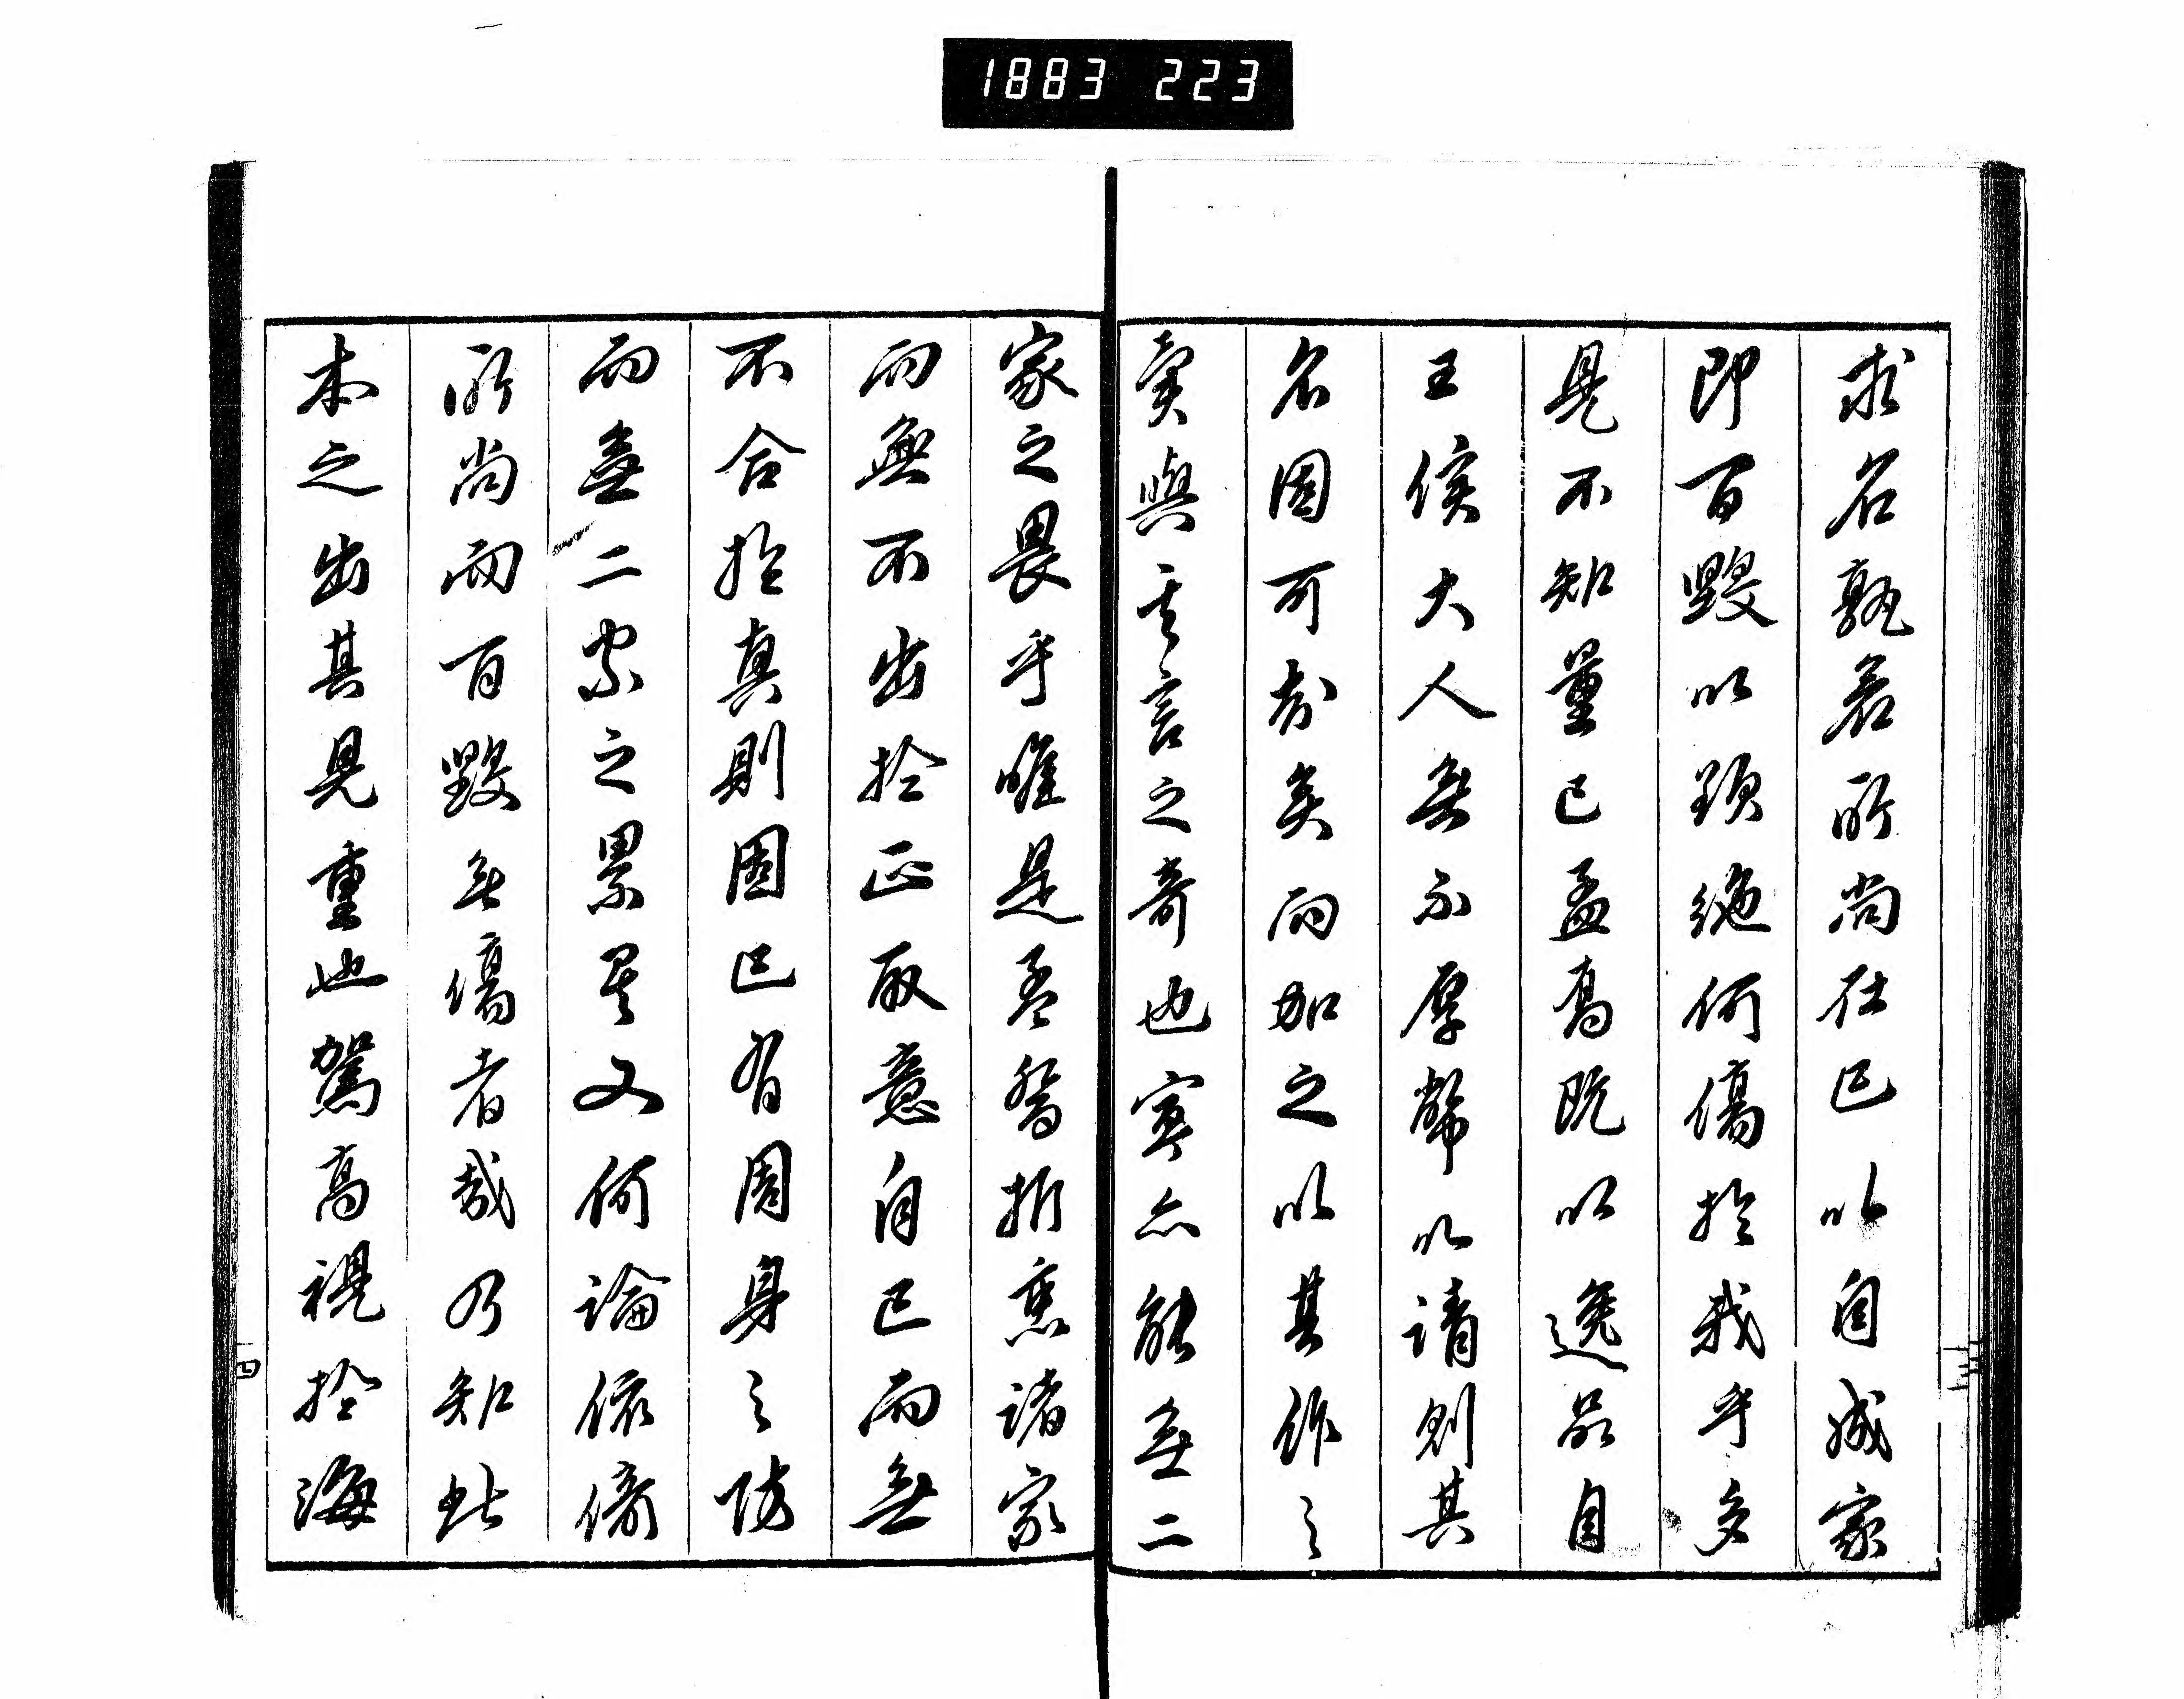 1883 223
求名孰若所尚在己以自成家
即百毀以頸絶何傷於我乎多
見不知量已孟高既以逸品自
王侯大人無不厚幣以請則其
名固可知矣而加之以其作之
奠與其言之奇也寧亦能無二
家之畏乎唯是吾黎折衷諸家
而無不出於正取意自己而無
不合於真則固已有周身之防
而無二家之累其又何論依傍
所尚而百毀無傷者哉乃知此
本之出其見重也駕高視於海
四